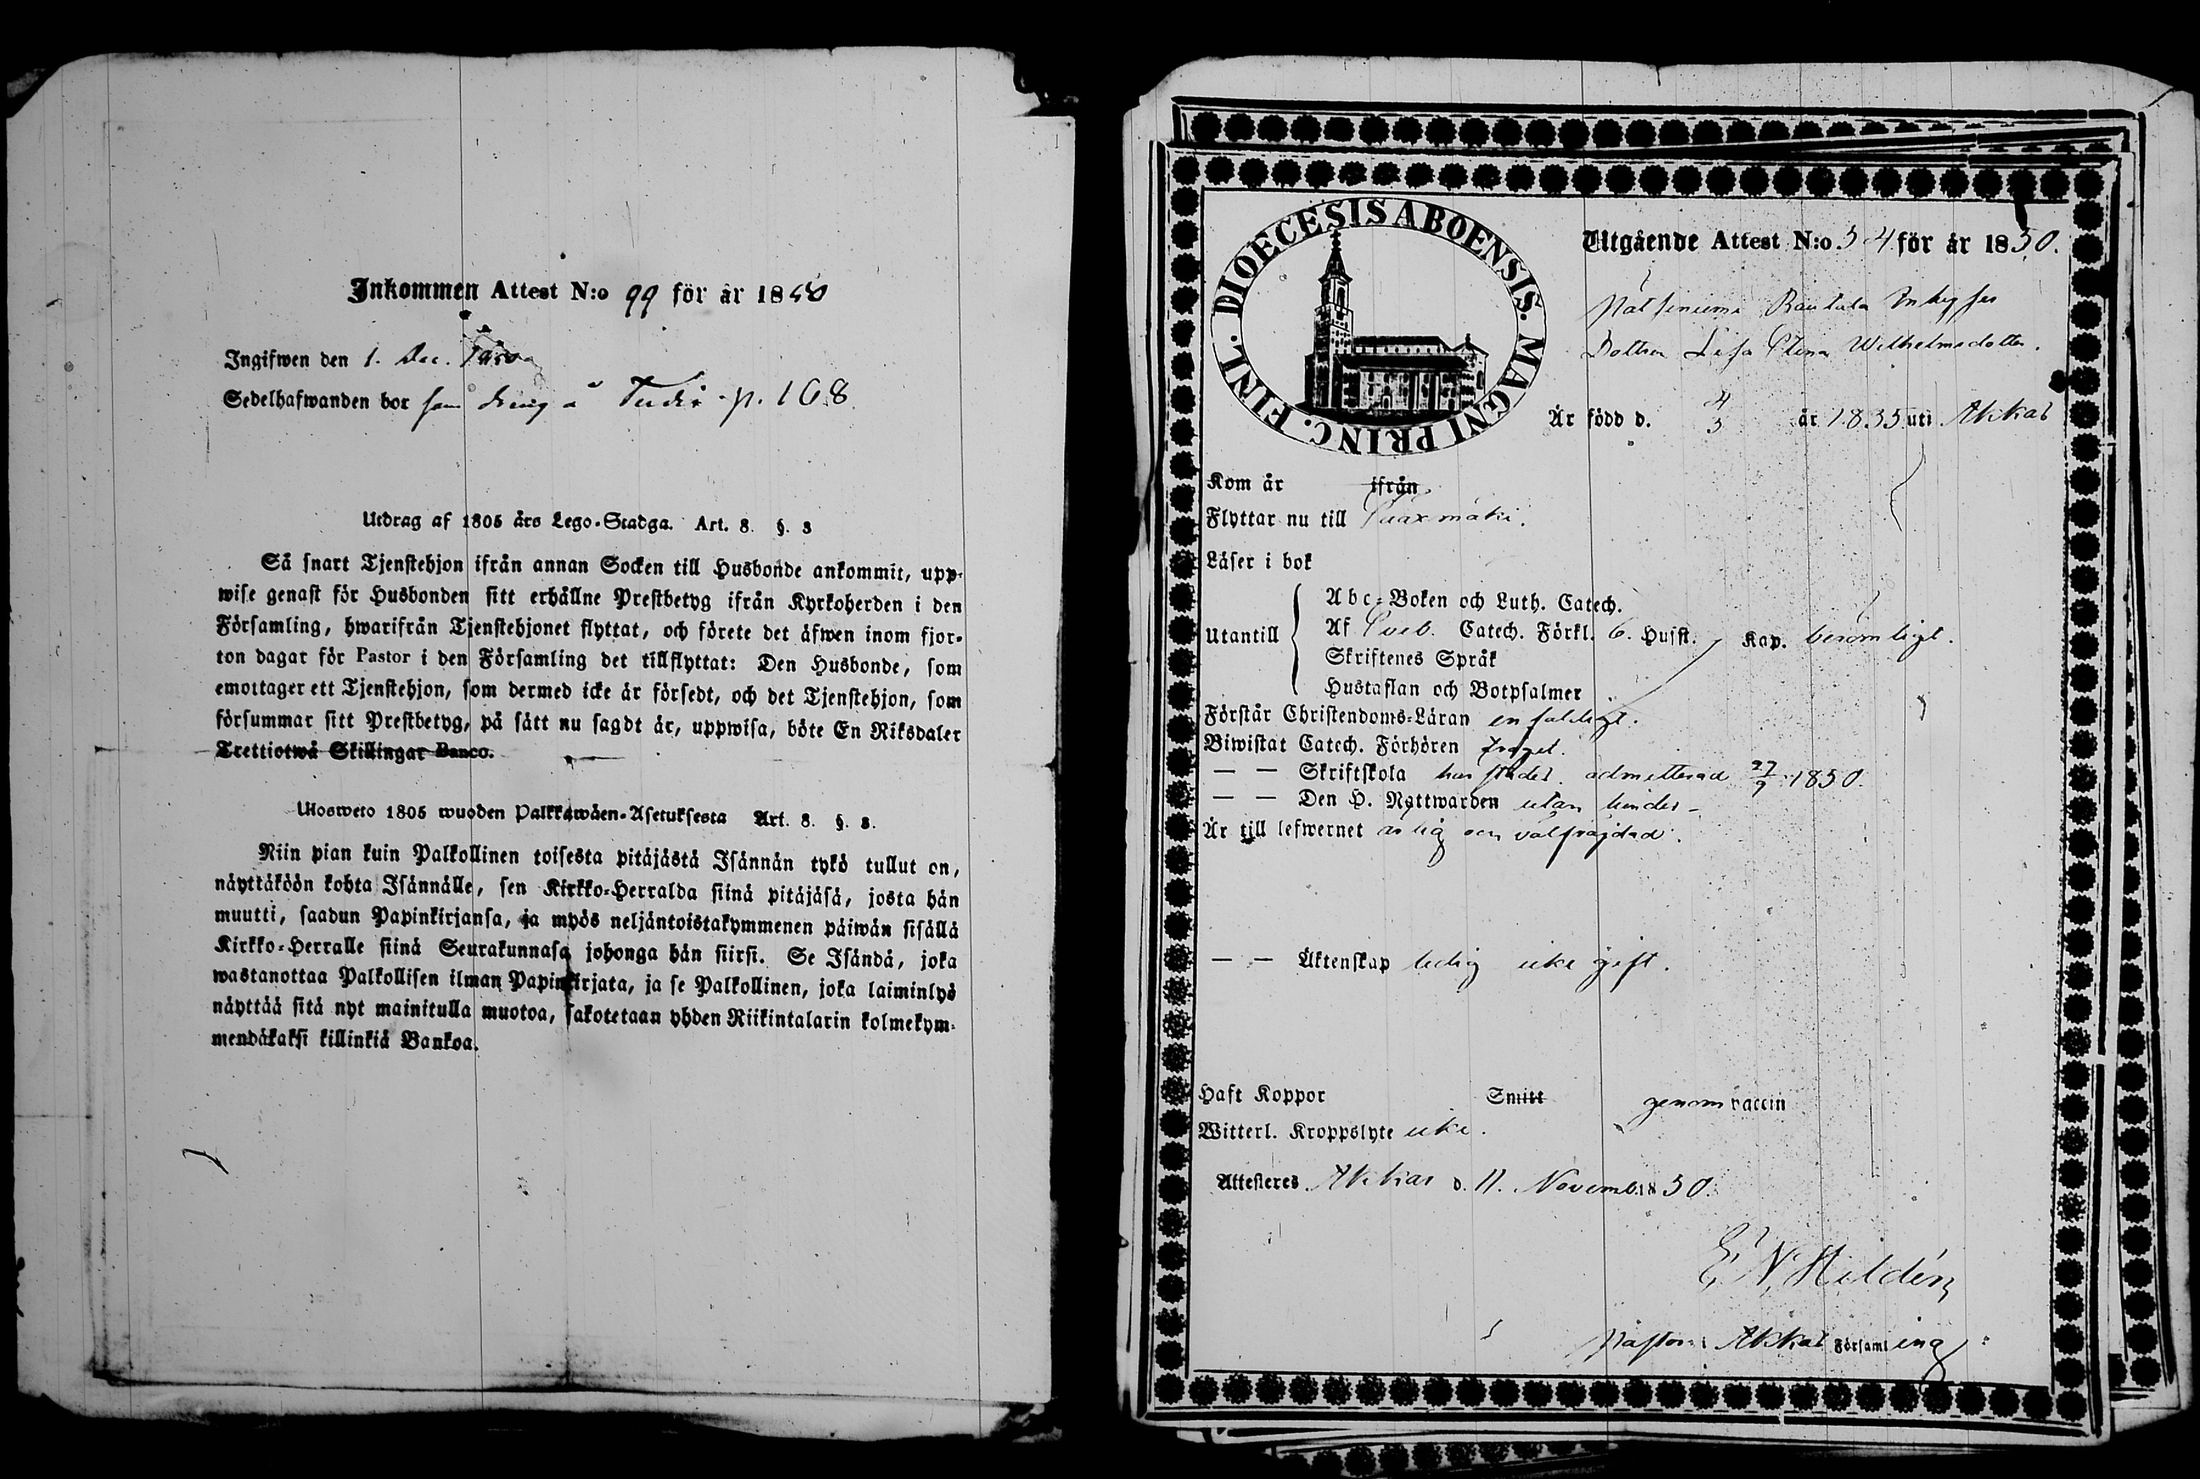 Inkommen Attest N:o 99 för år 1850
Ingifwen den 1. Dec.
Sedelhafwanden bor som dräng å p. 168
Utdrag af 1805 års Lego-Stadga. Art. 8. §. 3
Så snart Tjenstehjon ifrån annan Socken till Husbonde ankommit, upp-
wise genast för Husbonden sitt erhållne Prestbetyg ifrån Kyrkoherden i den
Församling, hwarifrån Tjenstehjonet flyttat, och förete det äfwen inom fjor-
ton dagar för Pastor i den Församling det tillflyttat: Den Husbonde, som
emottager ett Tjenstehjon, som dermed icke är försedt, och det Tjenstehjon, som
försummar sitt Prestbetyg, på sätt nu sagdt är, uppwisa, böte En Riksdaler
Trettiotwå Skillingar Banco.
Ulosweto 1805 wuoden Palkkawäen-Asetuksesta Art. 8. §. 3.
Niin pian kuin Palkollinen toisesta pitäjästä Isännän tykö tullut on,
näyttäköön kohta Isännälle, sen Kirkko-Herralda siinä pitäjäsä, josta hän
muutti, saadun Papinkirjansa, ja myös neljäntoistakymmenen päiwän sisällä
Kirkko-Herralle siinä Seurakunnasa johonga hän siirsi. Se Isändä, joka
wastanottaa Palkollisen ilman Papinkirjata, ja se Palkollinen, joka laiminlyö
näyttää sitä nyt mainitulla muotoa, sakotetaan yhden Riikintalarin kolmekym-
mendäkaksi killinkiä Bankoa.
DIOECESIS ABOENSIS. MAGNI PRINC. FINL.
Utgående Attest N:o 54 för år 1850.
Rautala Inhyses
Dottren Lisa Stina Wilhelmsdotter.
Är född d. 4/3 år 1835 uti Akkas
Kom år ifrån
Flyttar nu till Sääxmäki.
Läser i bok
Utantill
Abc-Boken och Luth. Catech.
Af Sveb. Catech. Förkl. 6. Hufst. Kap. berömligt.
Skriftenes Språk
Hustaflan och Botpsalmer
Förstår Christendoms-Läran enfaldigt.
Biwistat Catech. Förhören troget.
— — Skriftskola admitterad 27/9 1850.
— — Den H. Nattwarden utan hinder
Är till lefwernet ärlig och välfrägdad.
— — Äktenskap ledig icke gift.
Haft Koppor Smitt genom vaccin
Witterl. Kroppslyte icke.
Attesteres Akkas d. 11. Novemb. 1850.
E. N. Hildén
Pastor i Akkas Församling